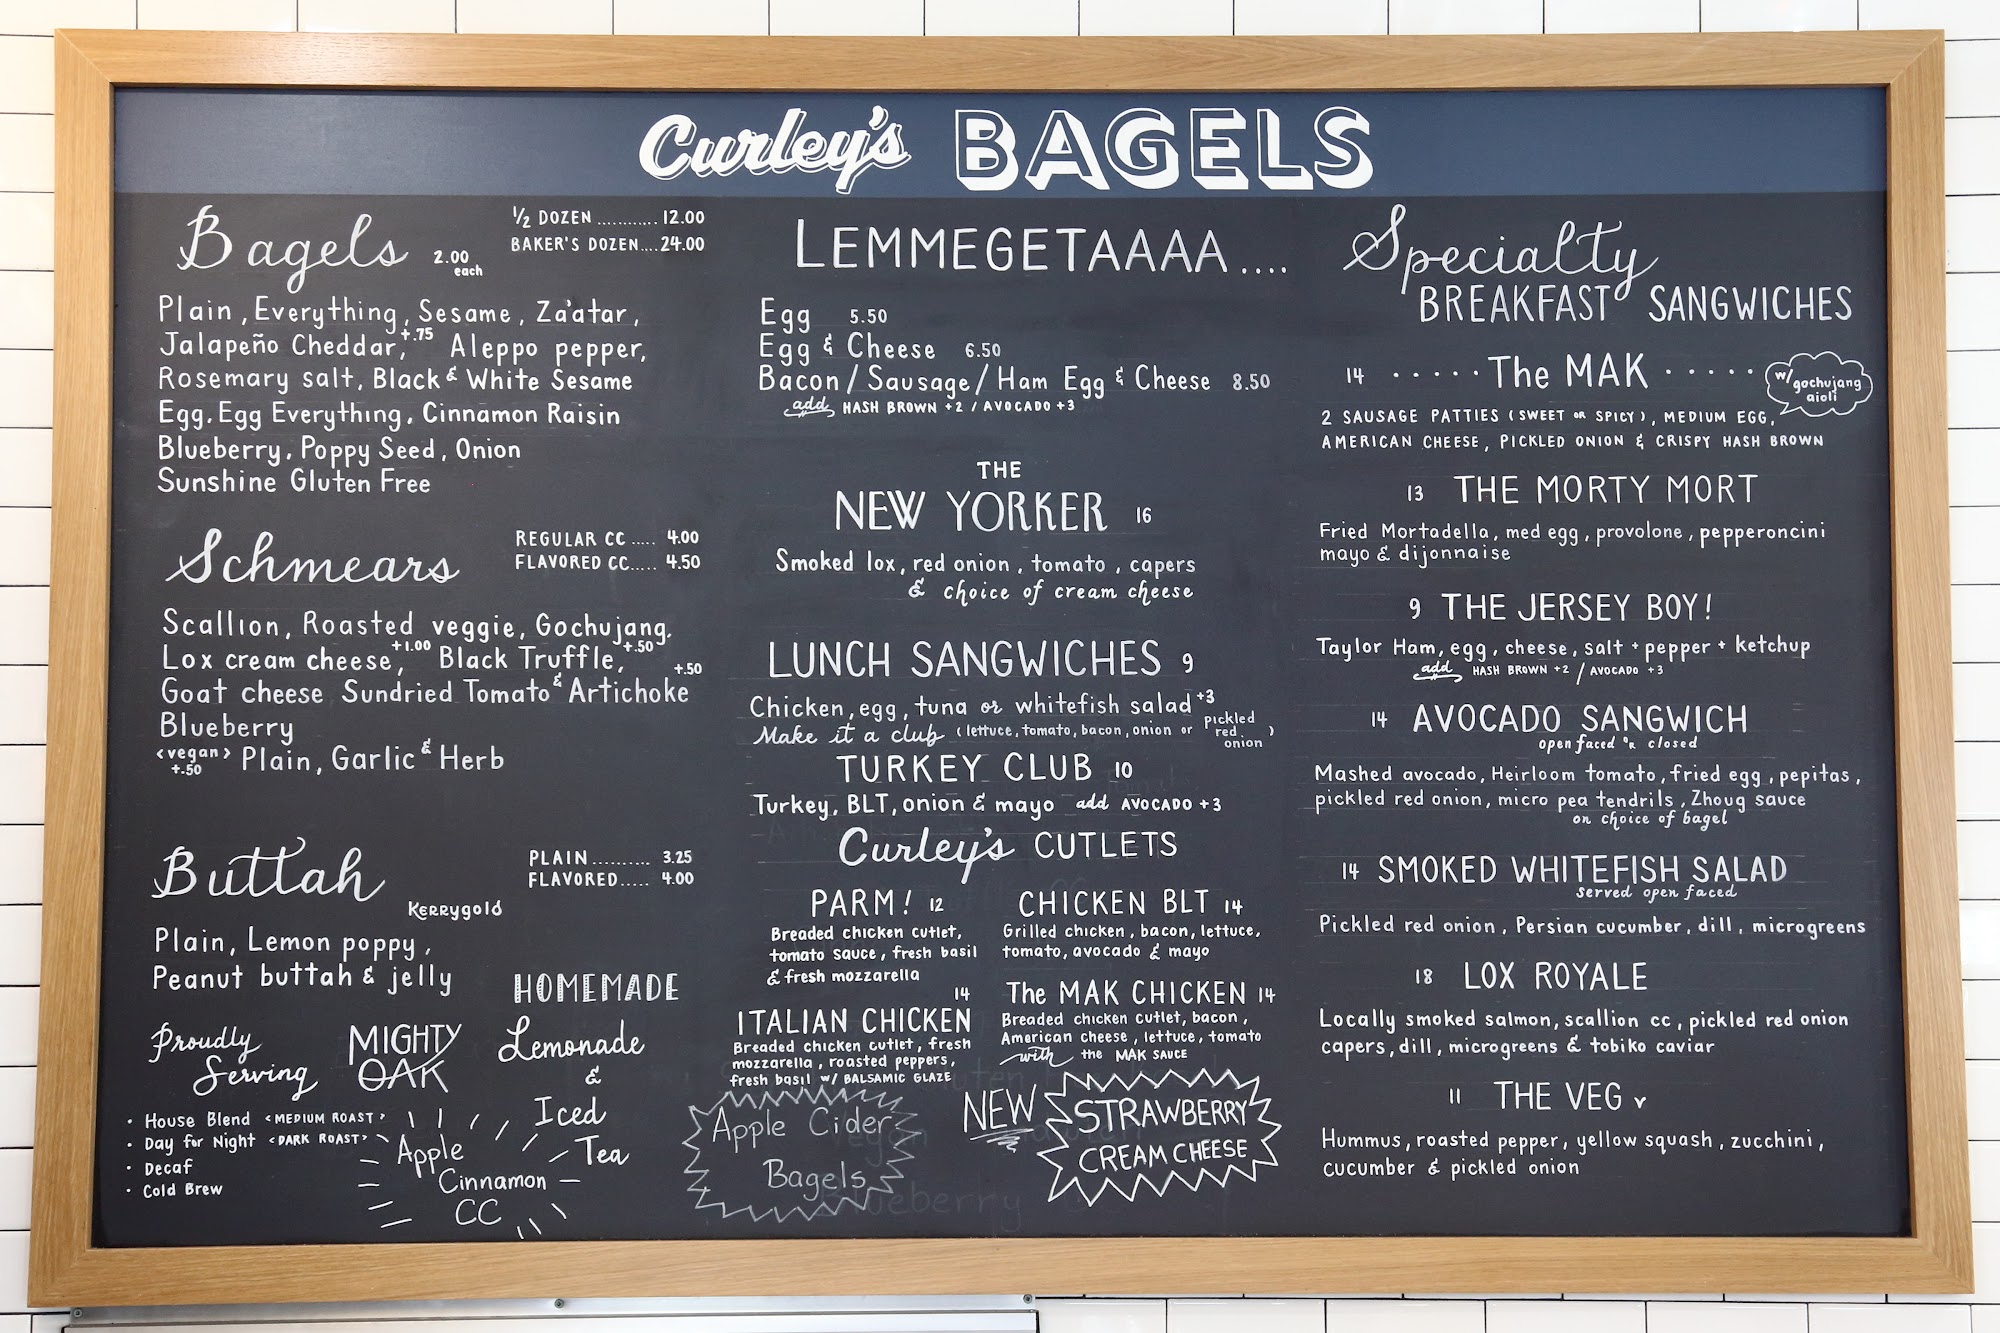 Curley's BAGELS
Bagels 2.00 each
½ DOZEN ........... 12.00
BAKER'S DOZEN.... 24.00
Plain, Everything, Sesame, Za'atar,
Jalapeño Cheddar, +.75 Aleppo pepper,
Rosemary salt, Black & White Sesame
Egg, Egg Everything, Cinnamon Raisin
Blueberry, Poppy Seed, Onion
Sunshine Gluten Free
Schmears
REGULAR CC ..... 4.00
FLAVORED CC..... 4.50
Scallion, Roasted veggie, Gochujang,
Lox cream cheese, +1.00 Black Truffle, +.50
Goat cheese Sundried Tomato & Artichoke +.50
Blueberry
<vegan> +.50 Plain, Garlic & Herb
Buttah
Kerrygold
PLAIN .......... 3.25
FLAVORED ..... 4.00
Plain, Lemon poppy,
Peanut buttah & jelly
Proudly
Serving
MIGHTY
OAK
• House Blend <MEDIUM ROAST>
• Day for Night <DARK ROAST>
• Decaf
• Cold Brew
HOMEMADE
Lemonade
&
Iced
Tea
Apple
Cinnamon
CC
LEMMEGETAAAA....
Egg 5.50
Egg & Cheese 6.50
Bacon/Sausage/Ham Egg & Cheese 8.50
add HASH BROWN +2 / AVOCADO +3
THE
NEW YORKER 16
Smoked lox, red onion, tomato, capers
& choice of cream cheese
LUNCH SANGWICHES 9
Chicken, egg, tuna or whitefish salad +3
Make it a club (lettuce, tomato, bacon, onion or pickled red onion)
TURKEY CLUB 10
Turkey, BLT, onion & mayo add AVOCADO +3
Curley's CUTLETS
PARM! 12
Breaded chicken cutlet,
tomato sauce, fresh basil
& fresh mozzarella
CHICKEN BLT 14
Grilled chicken, bacon, lettuce,
tomato, avocado & mayo
14
ITALIAN CHICKEN
Breaded chicken cutlet, fresh
mozzarella, roasted peppers,
fresh basil w/ BALSAMIC GLAZE
The MAK CHICKEN 14
Breaded chicken cutlet, bacon,
American cheese, lettuce, tomato
with the MAK SAUCE
Apple Cider
Bagels
NEW
STRAWBERRY
CREAM CHEESE
Specialty
BREAKFAST SANGWICHES
14 ..... The MAK .....
w/ gochujang
aioli
2 SAUSAGE PATTIES (SWEET OR SPICY), MEDIUM EGG,
AMERICAN CHEESE, PICKLED ONION & CRISPY HASH BROWN
13 THE MORTY MORT
Fried Mortadella, med egg, provolone, pepperoncini
mayo & dijonnaise
9 THE JERSEY BOY!
Taylor Ham, egg, cheese, salt + pepper + ketchup
add HASH BROWN +2 / AVOCADO +3
14 AVOCADO SANGWICH
open faced or closed
Mashed avocado, Heirloom tomato, fried egg, pepitas,
pickled red onion, micro pea tendrils, Zhoug sauce
on choice of bagel
14 SMOKED WHITEFISH SALAD
served open faced
Pickled red onion, Persian cucumber, dill, microgreens
18 LOX ROYALE
Locally smoked salmon, scallion cc, pickled red onion
capers, dill, microgreens & tobiko caviar
11 THE VEG v
Hummus, roasted pepper, yellow squash, zucchini,
cucumber & pickled onion